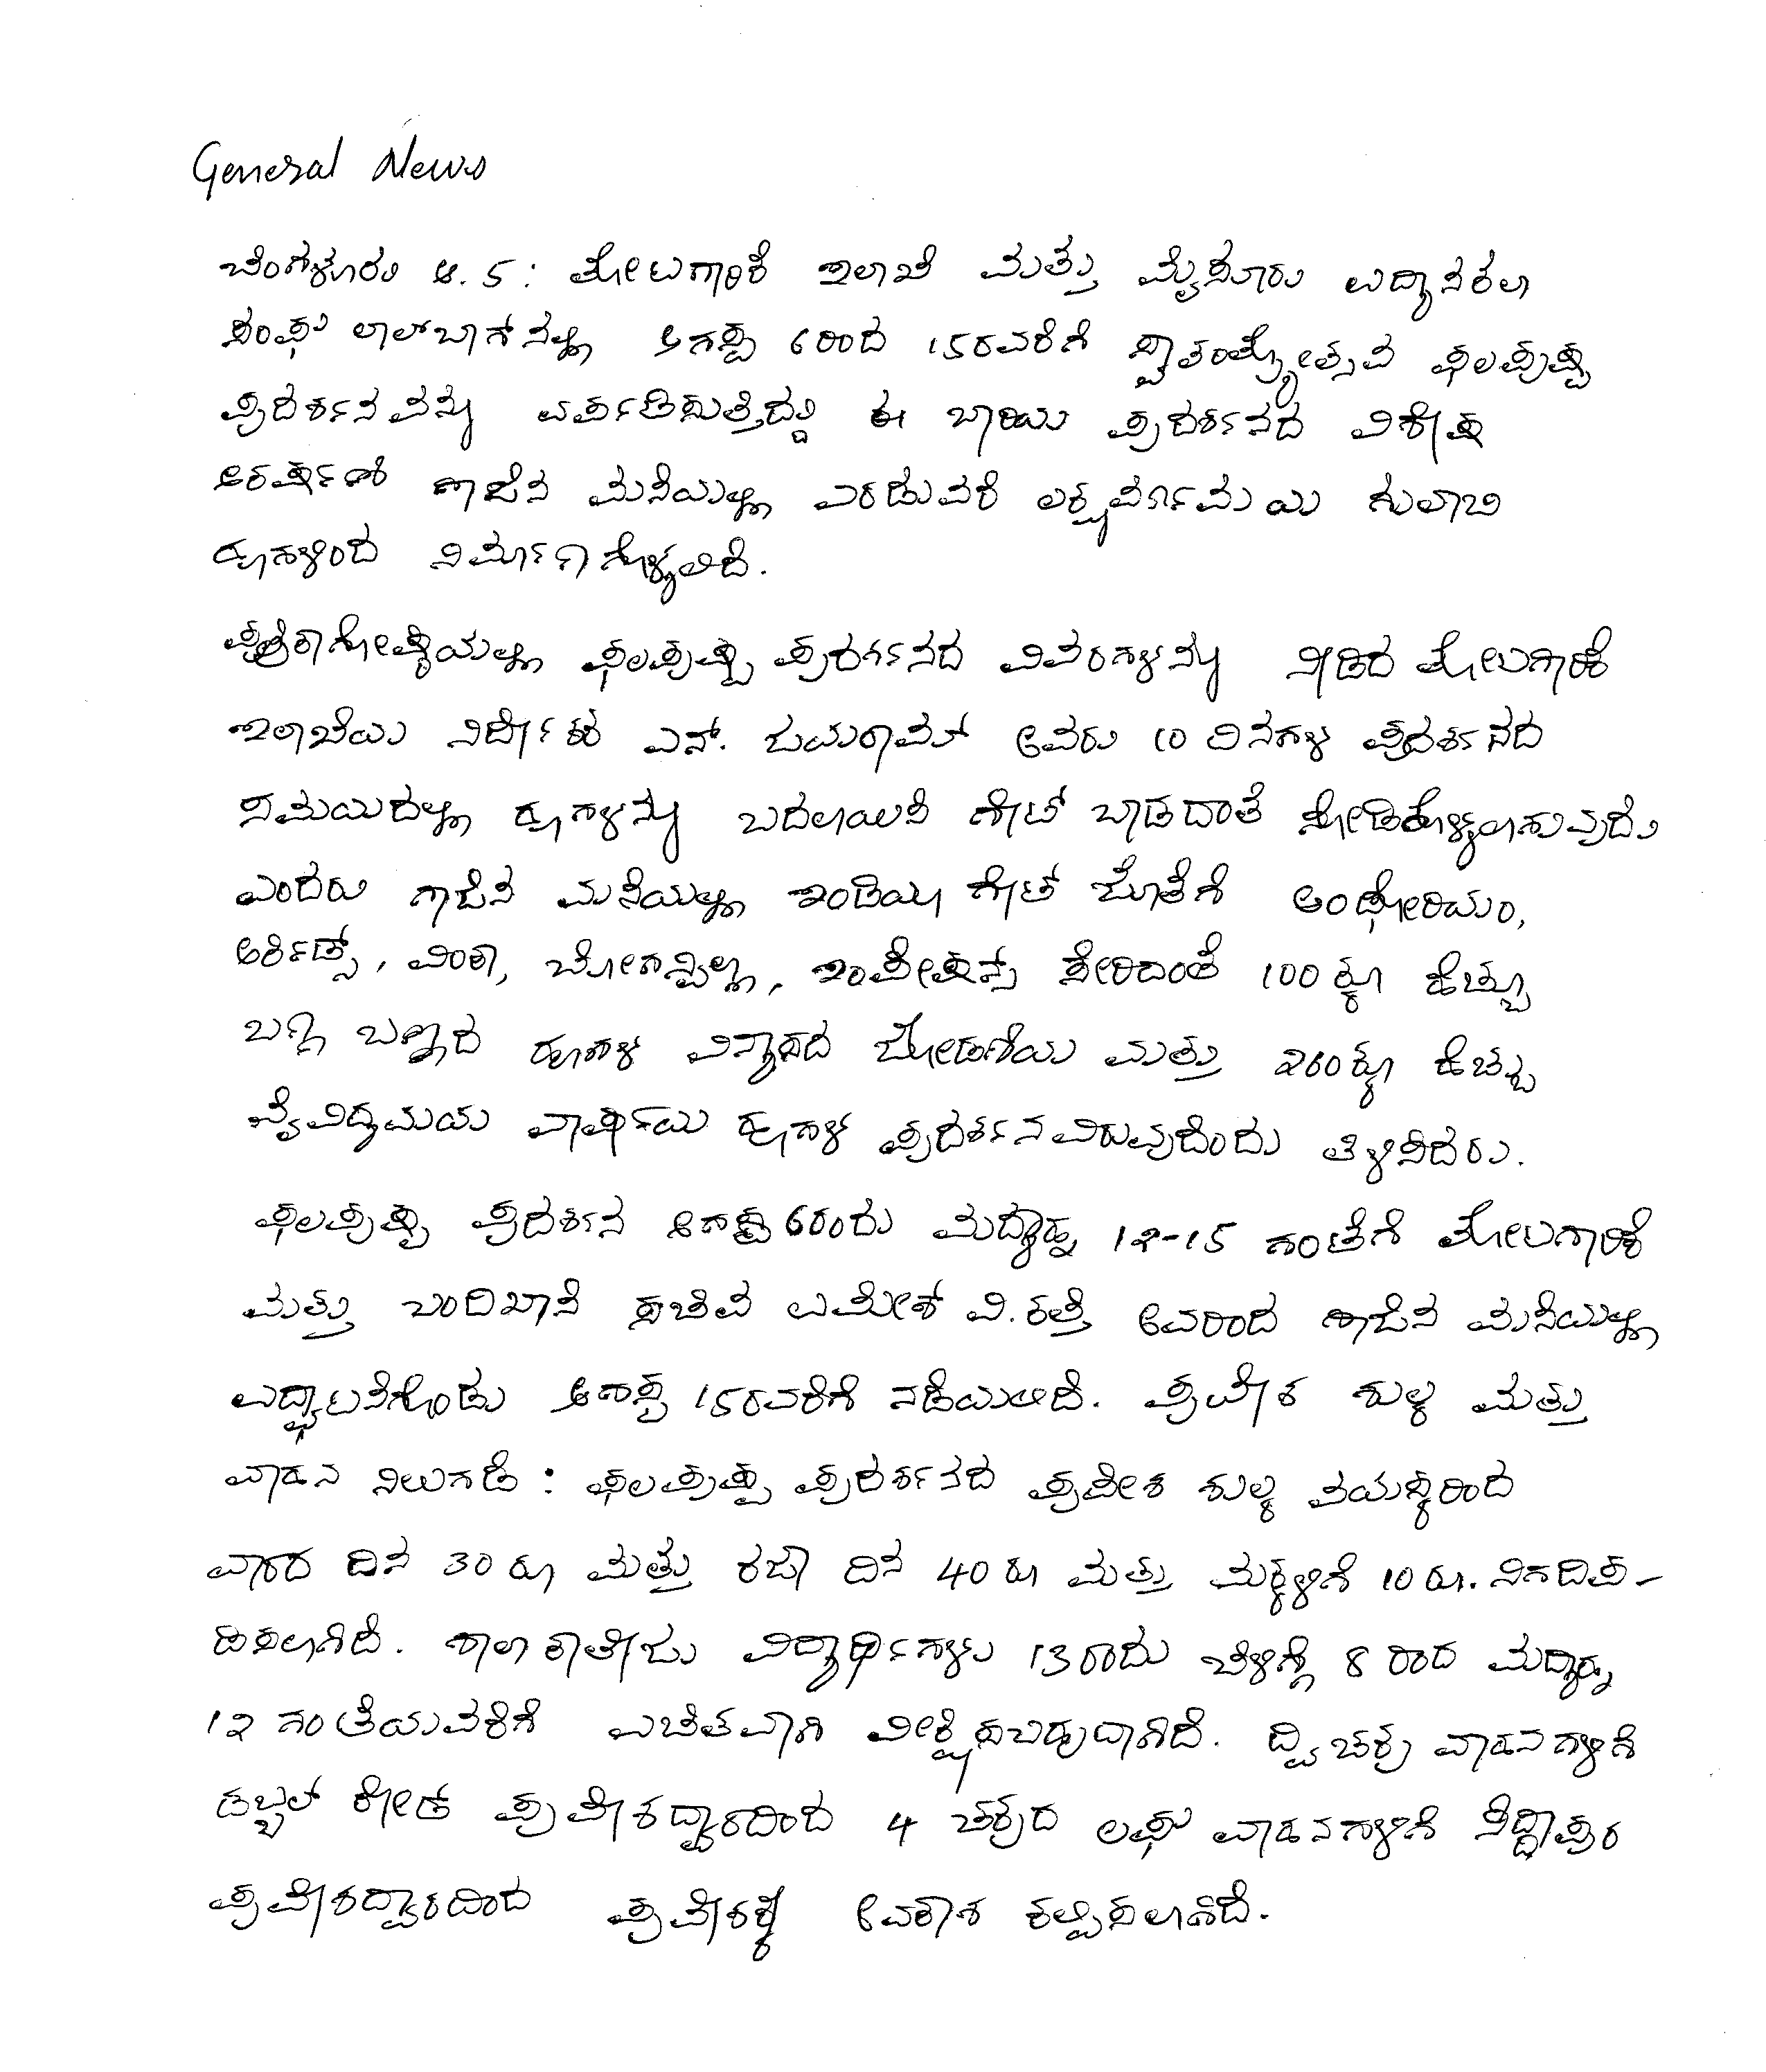 General News
ಬೆಂಗಳೂರು ಆ. 5 : ತೋಟಗಾರಿಕೆ ಇಲಾಖೆ ಮತ್ತು ಮೈಸೂರು ಉದ್ಯಾನಕಲಾ
ಸಂಘ ಲಾಲ್‌ಬಾಗ್‌ನಲ್ಲಿ ಆಗಸ್ಟ 6ರಿಂದ 15ರವರೆಗೆ ಸ್ವಾತಂತ್ರ್ಯೋತ್ಸವ ಫಲಪುಷ್ಪ
ಪ್ರದರ್ಶನವನ್ನು ಏರ್ಪಡಿಸುತ್ತಿದ್ದು ಈ ಬಾರಿಯ ಪ್ರದರ್ಶನದ ವಿಶೇಷ
ಆಕರ್ಷಣೆ ಗಾಜಿನ ಮನೆಯಲ್ಲಿ ಎರಡುವರೆ ಲಕ್ಷವರ್ಣಮಯ ಗುಲಾಬಿ
ಹೂಗಳಿಂದ ನಿರ್ಮಾಣಗೊಳ್ಳಲಿದೆ.
ಪತ್ರಿಕಾಗೋಷ್ಠಿಯಲ್ಲಿ ಫಲಪುಷ್ಪ ಪ್ರದರ್ಶನದ ವಿವರಗಳನ್ನು ನೀಡಿದ ತೋಟಗಾರಿಕೆ
ಇಲಾಖೆಯ ನಿರ್ದೇಶಕ ಎನ್. ಜಯರಾಮ್ ಅವರು 10 ದಿನಗಳ ಪ್ರದರ್ಶನದ
ಸಮಯದಲ್ಲಿ ಹೂಗಳನ್ನು ಬದಲಾಯಿಸಿ ಗೇಟ್ ಬಾಡದಂತೆ ನೋಡಿಕೊಳ್ಳಲಾಗುವುದು
ಎಂದರು ಗಾಜಿನ ಮನೆಯಲ್ಲಿ ಇಂಡಿಯಾ ಗೇಟ್ ಜೊತೆಗೆ ಆಂಥೋರಿಯಂ,
ಆರ್ಕಿಡ್ಸ್, ವಿಂಕಾ, ಬೋಗನ್ವಿಲ್ಲಾ, ಇಂಪೇಷನ್ಸ್ ಸೇರಿದಂತೆ 100ಕ್ಕೂ ಹೆಚ್ಚು
ಬಗೆ ಬಣ್ಣದ ಹೂಗಳ ವಿನ್ಯಾಸದ ಜೋಡಣೆಯ ಮತ್ತು 260ಕ್ಕೂ ಹೆಚ್ಚು
ವೈವಿದ್ಯಮಯ ವಾರ್ಷಿಕ ಹೂಗಳ ಪ್ರದರ್ಶನವಿರುವುದೆಂದು ತಿಳಿಸಿದರು.
ಫಲಪುಷ್ಪ ಪ್ರದರ್ಶನ ಆಗಸ್ಟ 6ರಂದು ಮದ್ಯಾಹ್ನ 12-15 ಗಂಟೆಗೆ ತೋಟಗಾರಿಕೆ
ಮತ್ತು ಬಂದಿಖಾನೆ ಸಚಿವ ಉಮೇಶ್ ವಿ. ಕತ್ತಿ ಅವರಿಂದ ಗಾಜಿನ ಮನೆಯಲ್ಲಿ
ಉದ್ಘಾಟನೆಗೊಂಡು ಆಗಸ್ಟ 15ರವರೆಗೆ ನಡೆಯಲಿದೆ. ಪ್ರವೇಶ ಶುಲ್ಕ ಮತ್ತು
ವಾಹನ ನಿಲುಗಡೆ : ಫಲಪುಷ್ಪ ಪ್ರದರ್ಶನದ ಪ್ರವೇಶ ಶುಲ್ಕ ವಯಸ್ಕರಿಂದ
ವಾರದ ದಿನ 30 ರೂ ಮತ್ತು ರಜಾ ದಿನ 40 ರೂ ಮತ್ತು ಮಕ್ಕಳಿಗೆ 10 ರೂ. ನಿಗದಿಪ-
ಡಿಸಲಾಗಿದೆ. ಶಾಲಾ ಕಾಲೇಜು ವಿದ್ಯಾರ್ಥಿಗಳು 13ರಂದು ಬೆಳಿಗ್ಗೆ 8 ರಿಂದ ಮದ್ಯಾಹ್ನ
12 ಗಂಟೆಯವರೆಗೆ ಉಚಿತವಾಗಿ ವೀಕ್ಷಿಸಬಹುದಾಗಿದೆ. ದ್ವಿಚಕ್ರ ವಾಹನಗಳಿಗೆ
ಡಬ್ಬಲ್ ರೋಡ್ ಪ್ರವೇಶದ್ವಾರದಿಂದ 4 ಚಕ್ರದ ಲಘು ವಾಹನಗಳಿಗೆ ಸಿದ್ದಾಪುರ
ಪ್ರವೇಶದ್ವಾರದಿಂದ ಪ್ರವೇಶಕ್ಕೆ ಅವಕಾಶ ಕಲ್ಪಿಸಲಾಗಿದೆ.